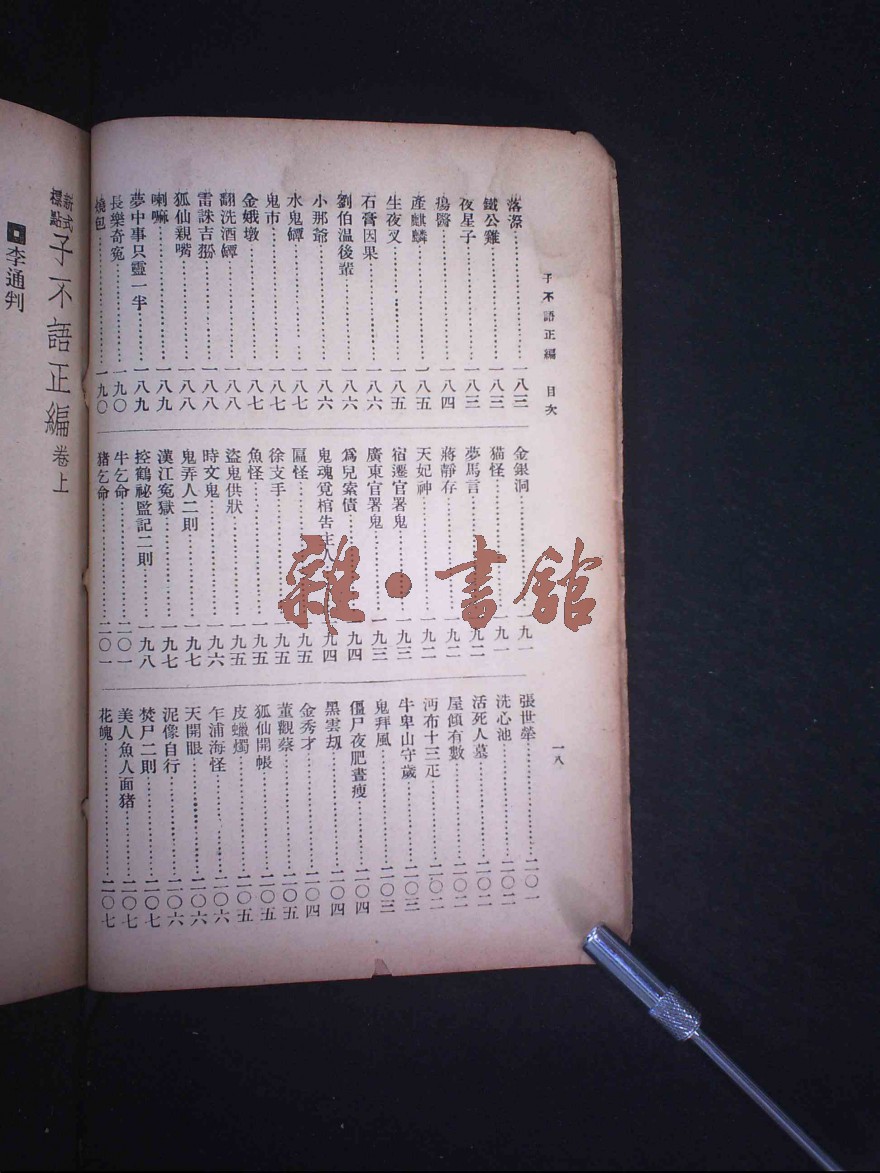 子不語正編 目次 一八
落漈……一八三
鐵公雞……一八三
夜星子……一八三
瘍醫……一八四
產麒麟……一八五
生夜叉……一八五
石膏因果……一八六
劉伯温後輩……一八六
小那爺……一八六
水鬼罈……一八七
鬼市……一八七
金娥墩……一八七
翻洗酒罈……一八八
雷誅吉翂……一八八
狐仙親嘴……一八八
喇嘛……一八九
夢中事只靈一半……一八九
長樂奇寃……一九〇
燒包……一九〇
金銀洞……一九一
猫怪……一九一
夢馬言……一九二
蔣靜存……一九二
天妃神……一九二
宿遷官署鬼……一九三
廣東官署鬼……一九三
爲兒索債……一九四
鬼魂覓棺告主人……一九四
匾怪……一九五
徐支手……一九五
魚怪……一九五
盜鬼供狀……一九五
時文鬼……一九六
鬼弄人二則……一九七
漢江寃獄……一九七
控鶴祕監記二則……一九八
牛乞命……二〇一
豬乞命……二〇一
張世犖……二〇一
洗心池……二〇二
活死人墓……二〇二
屋傾有數……二〇二
沔布十三疋……二〇二
牛卑山守歲……二〇三
鬼拜風……二〇三
僵尸夜肥晝瘦……二〇四
黑雲刼……二〇四
金秀才……二〇四
董觀蔡……二〇五
狐仙開帳……二〇五
皮蠟燭……二〇五
乍浦海怪……二〇六
天開眼……二〇六
泥像自行……二〇六
焚尸二則……二〇七
美人魚人面猪……二〇七
花魄……二〇七
新式標點 子不語正編 卷上
李通判
雜·書館